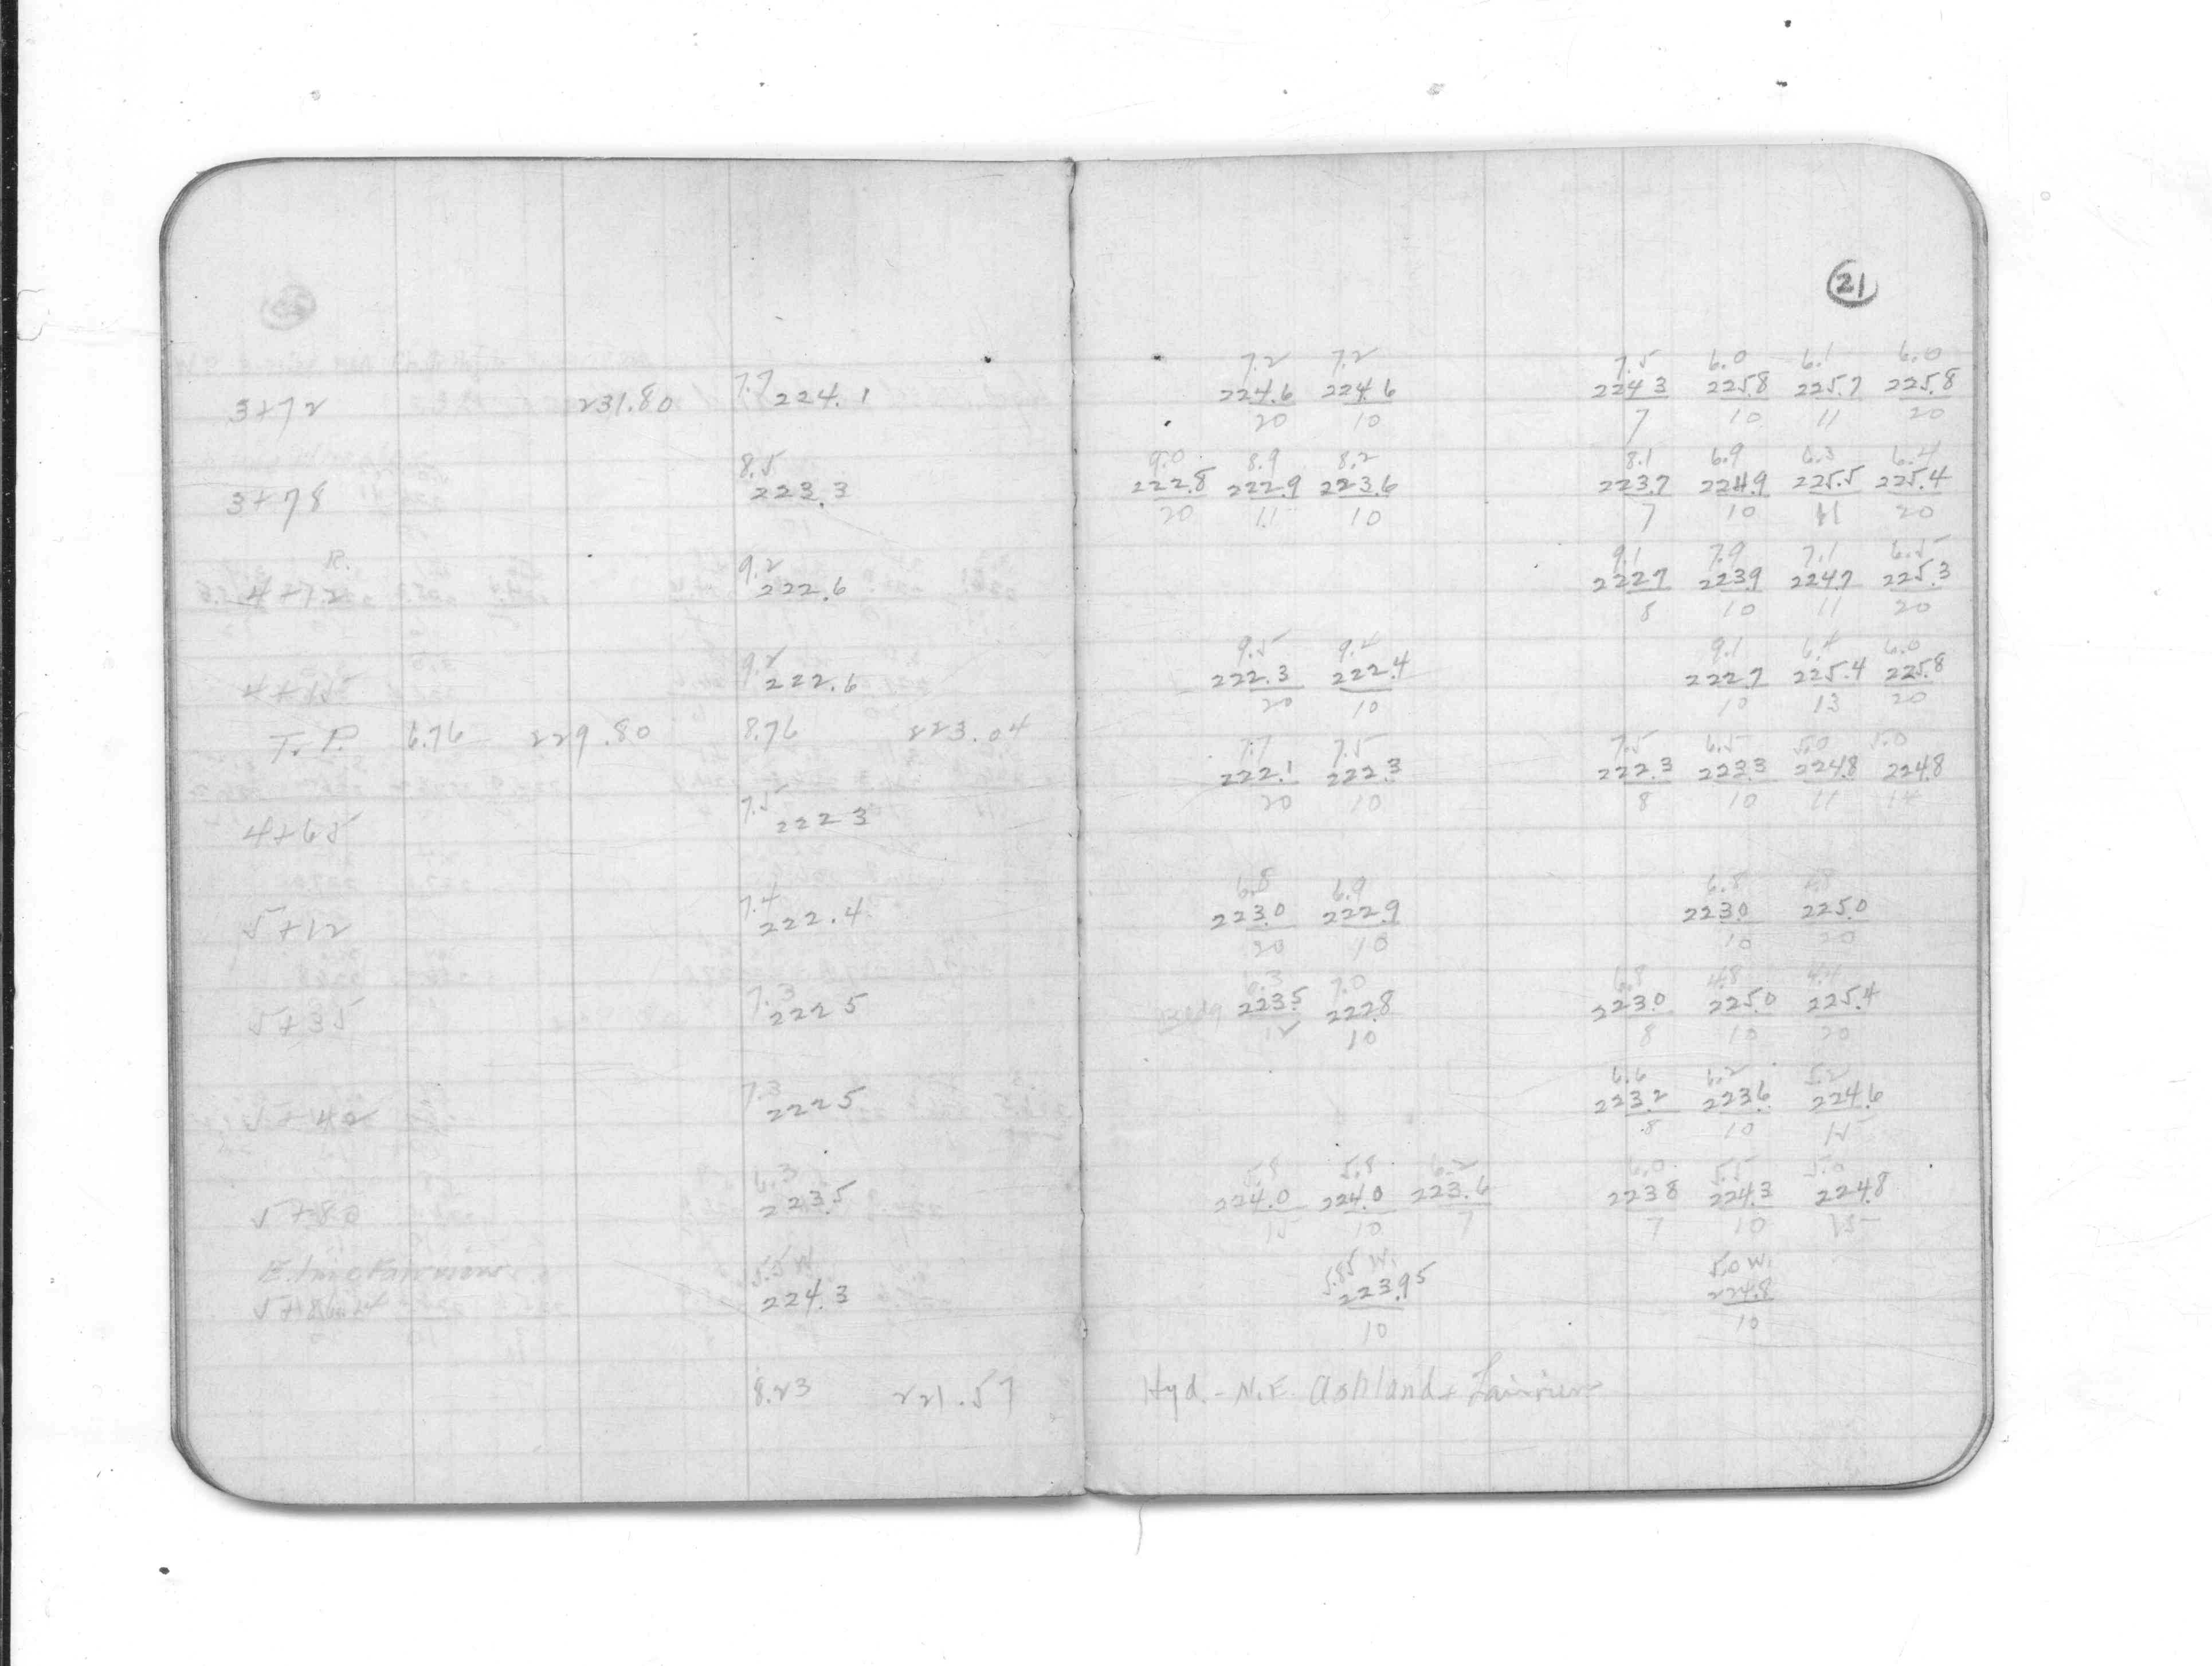 21
7.2 7.2 7.5 6.0 6.1 6.0
3+72 231.80 7.7 224.1 224.6 224.6 224.3 225.8 225.7 225.8
20 10 7 10 11 20
8.5 9.0 8.9 8.2 8.1 6.9 6.3 6.4
3+78 223.3 222.8 222.9 223.6 223.7 224.9 225.5 225.4
20 11 10 7 10 11 20
R. 9.2 9.1 7.9 7.1 6.5
222.6 222.7 223.9 224.7 225.3
8 10 11 20
9.2 9.5 9.4 9.1 6.4 6.0
4+15 222.6 222.3 222.4 222.7 225.4 225.8
20 10 10 13 20
T.P. 6.76 229.80 8.76 223.04
7.7 7.5 7.5 6.5 5.0 5.0
222.1 222.3 222.3 223.3 224.8 224.8
20 10 8 10 11 14
4+65 7.5 222.3
6.8 6.9 6.8 4.8
5+12 7.4 222.4 223.0 222.9 223.0 225.0
20 10 10 20
6.3 7.0 6.8 4.8 4.4
5+35 7.3 222.5 Bldg 223.5 222.8 223.0 225.0 225.4
12 10 8 10 20
6.6 6.2 5.2
5+40 7.3 222.5 223.2 223.6 224.6
8 10 15
6.3 5.8 5.8 6.2 6.0 5.5 5.0
5+80 223.5 224.0 224.0 223.6 223.8 224.3 224.8
15 10 7 7 10 15
E. line Fairview 5.5 W. 5.85 W. 5.0 W.
224.3 223.95 224.8
10 10
8.23 221.57 Hyd. - N.E. Ashland & Fairview